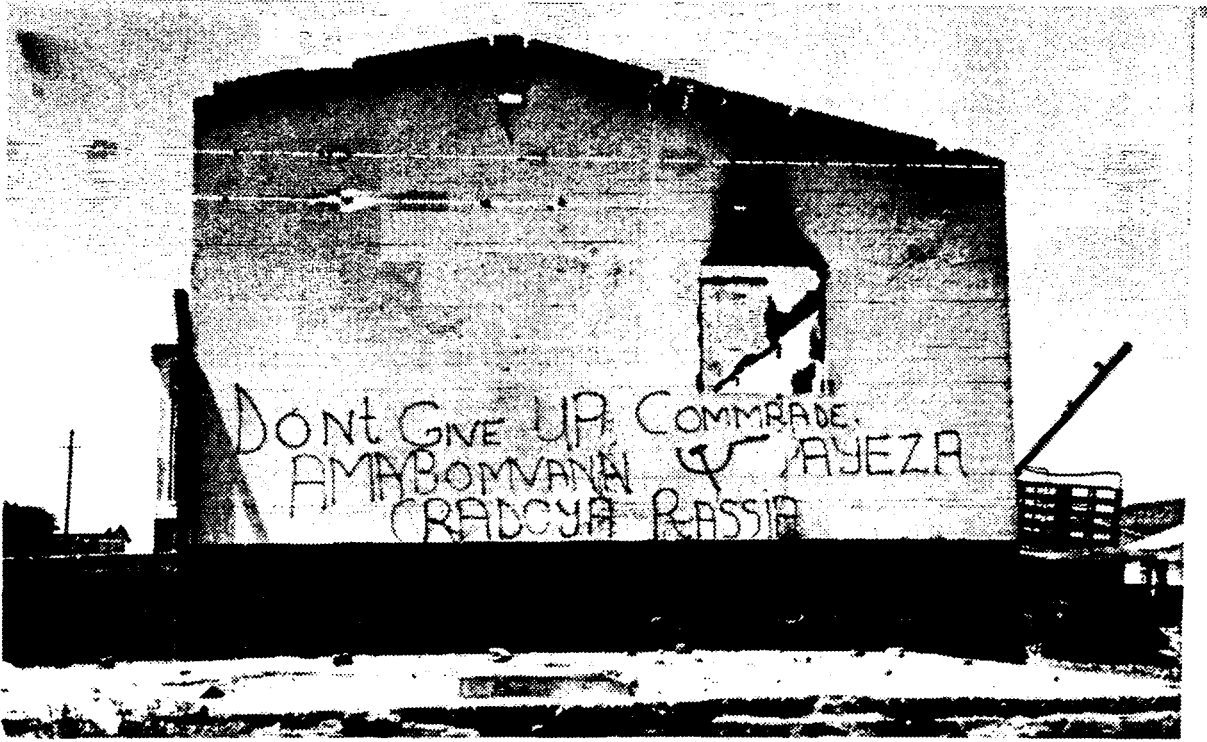 DONt GIVE UP. COMMRADE.
AMABOMVANA AYEZA
CRADOYA RASSIA